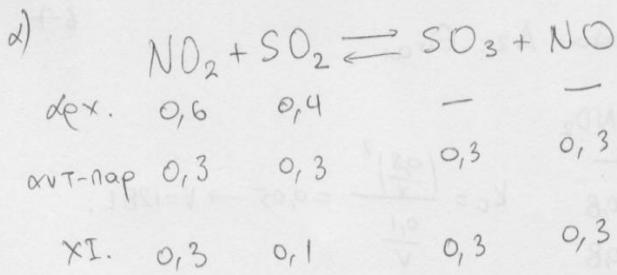 α)
NO₂ + SO₂ ⇌ SO₃ + NO
αρχ. 0,6 0,4 — —
αντ-παρ 0,3 0,3 0,3 0,3
ΧΙ. 0,3 0,1 0,3 0,3